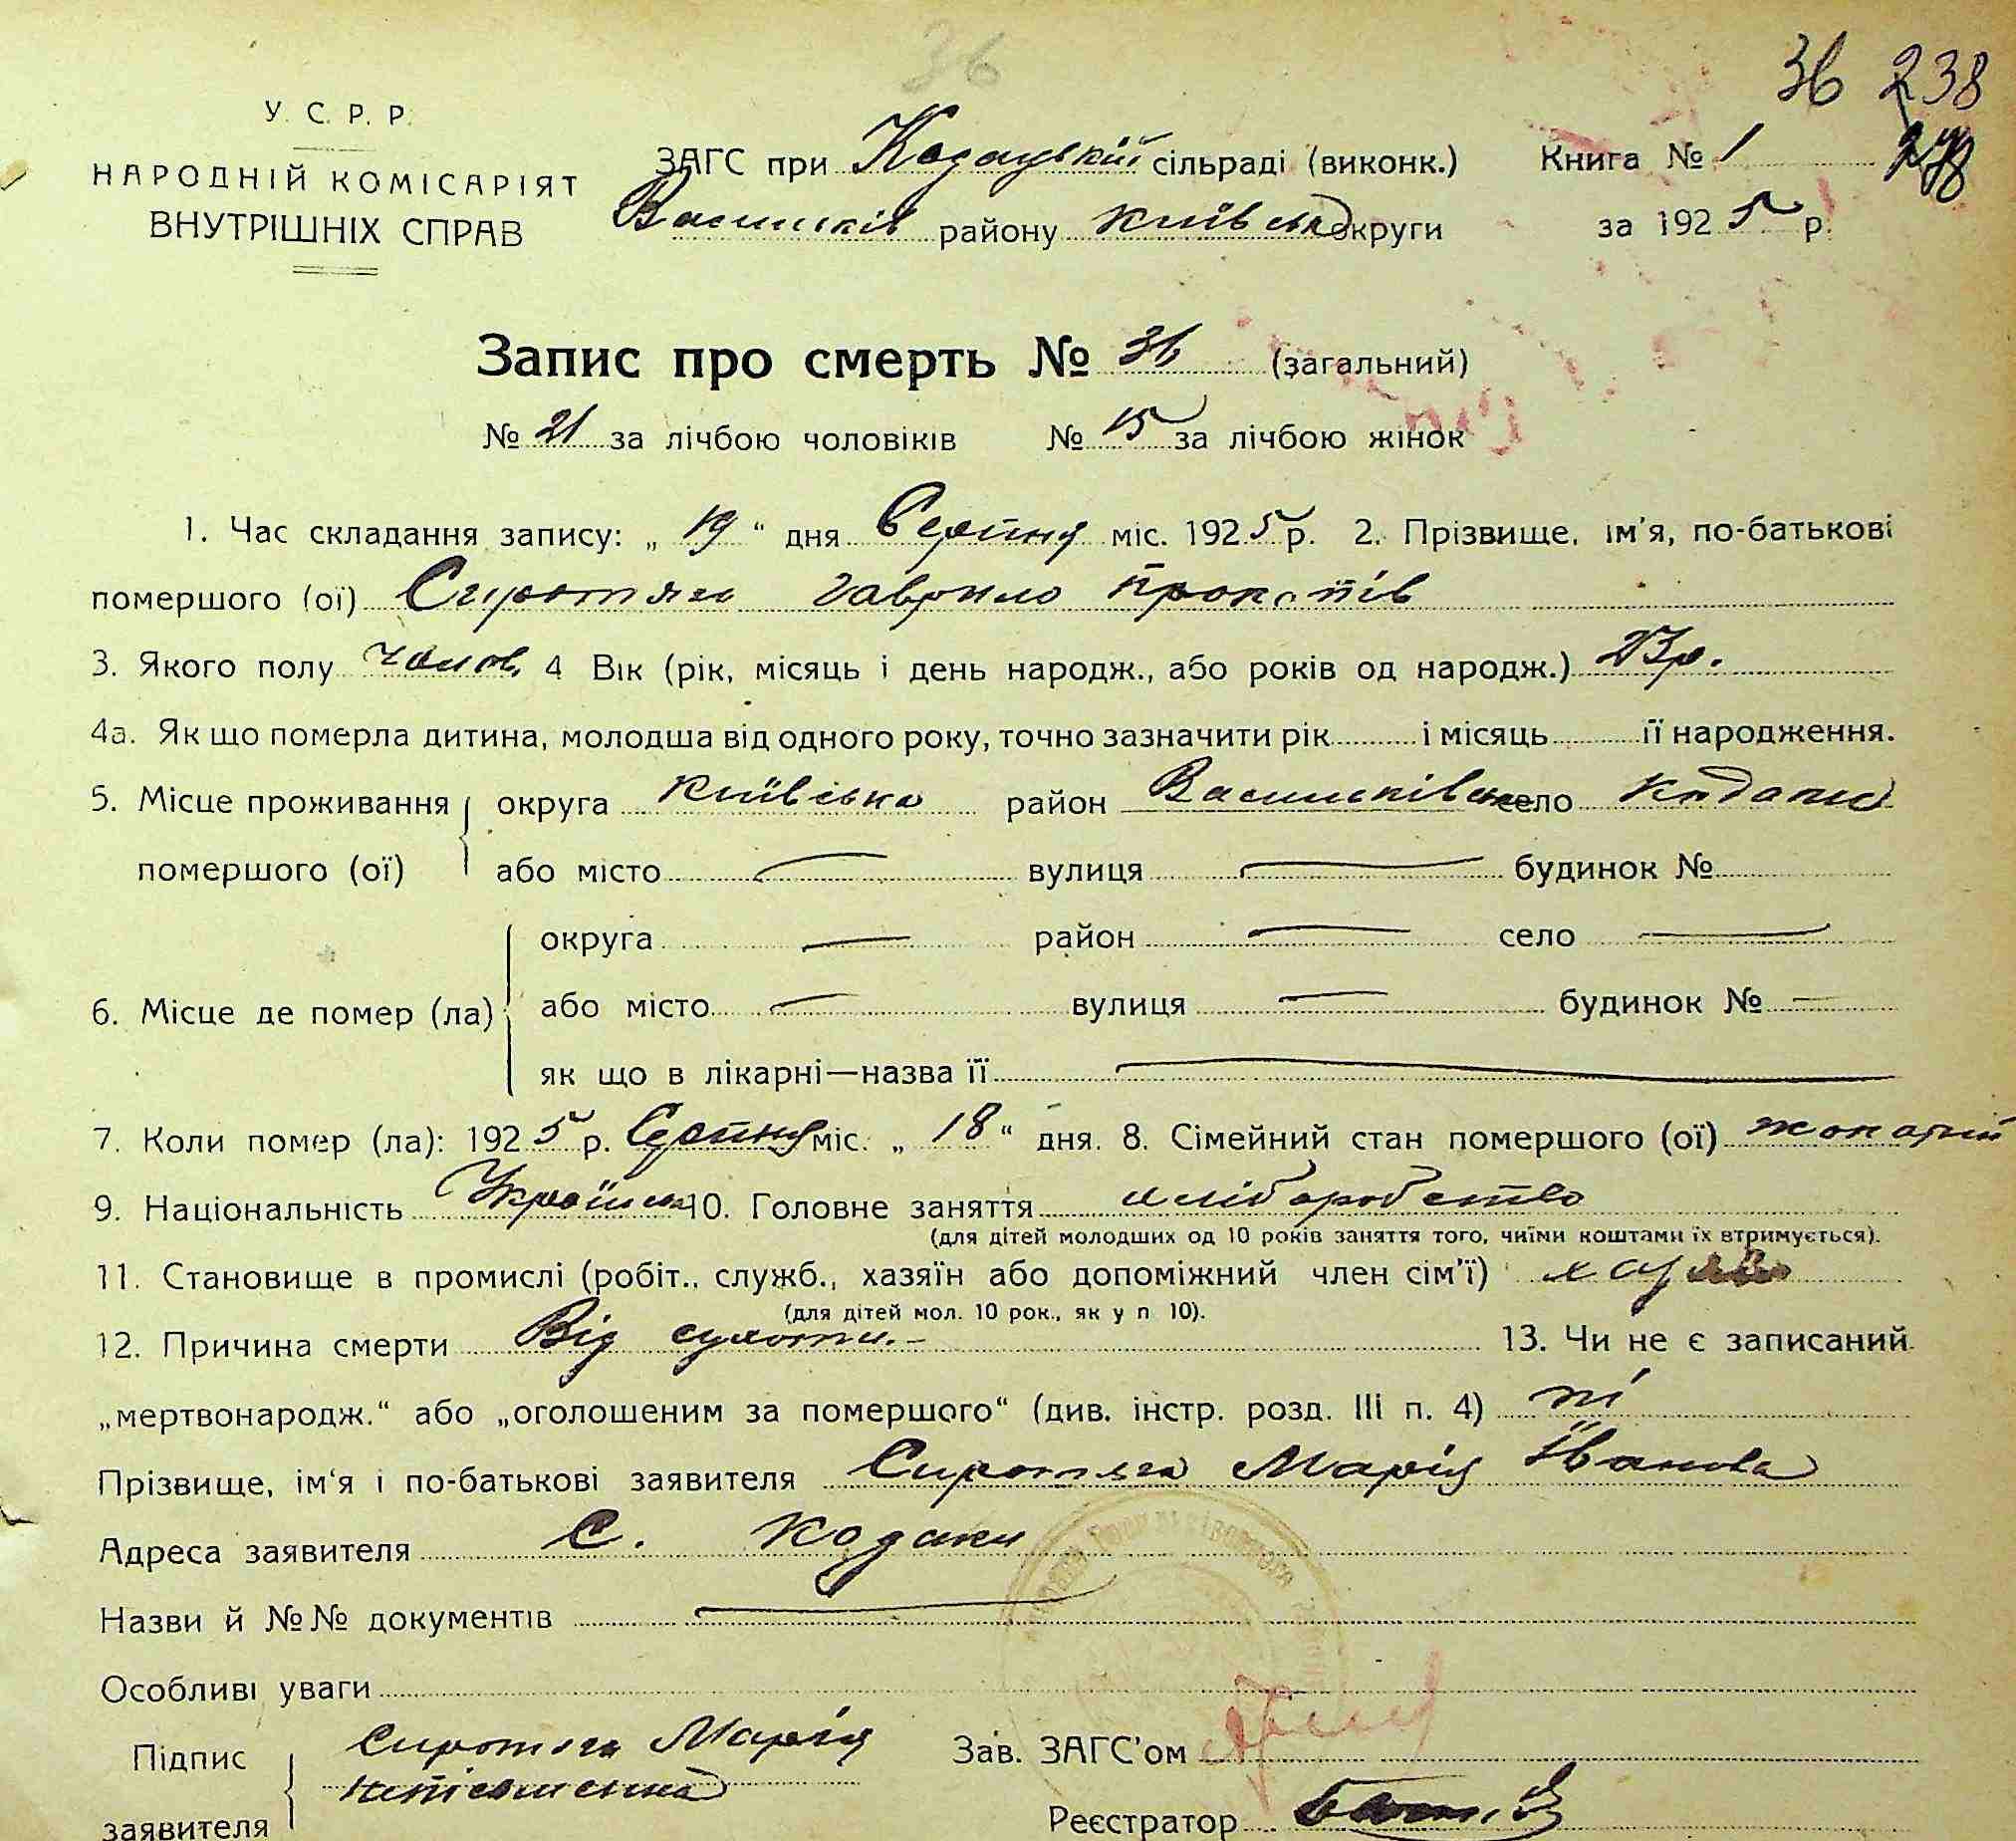 36
36 238
У. С. Р. Р.
НАРОДНІЙ КОМІСАРІЯТ
ВНУТРІШНІХ СПРАВ
ЗАГС при Кодацькій сільраді (виконк.)
Васильків району Київська округи
Книга № 1
за 1925 р.
Запис про смерть № 36 (загальний)
№ 21 за лічбою чоловіків № 15 за лічбою жінок
1. Час складання запису: „ 19 “ дня Серпня міс. 1925 р. 2. Прізвище, ім'я, по-батькові
помершого (ої) Сиротяга Гаврило Прокопів
3. Якого полу чолов. 4 Вік (рік, місяць і день народж., або років од народж.) 23 р.
4а. Як що померла дитина, молодша від одного року, точно зазначити рік і місяць її народження.
5. Місце проживання округа Київська район Васильківськ село Кодаки
помершого (ої) або місто — вулиця — будинок №
округа — район — село —
6. Місце де помер (ла) або місто — вулиця — будинок № —
як що в лікарні—назва її —
7. Коли помер (ла): 1925 р. Серпня міс. „ 18 “ дня. 8. Сімейний стан помершого (ої) жонатий
9. Національність Україн 10. Головне заняття хліборобство
(для дітей молодших од 10 років заняття того, чиїми коштами їх втримується).
11. Становище в промислі (робіт., служб., хазяїн або допоміжний член сім'ї)
(для дітей мол. 10 рок., як у п 10).
12. Причина смерти Від сухоти. – 13. Чи не є записаний
„мертвонародж.“ або „оголошеним за помершого“ (див. інстр. розд. III п. 4) ні
Прізвище, ім'я і по-батькові заявителя Сиротяга Марія Іванова
Адреса заявителя С. Кодаки
Назви й №№ документів —
Особливі уваги
Підпис заявителя Сиротяга Марія
неписьменна
Зав. ЗАГС'ом
Реєстратор